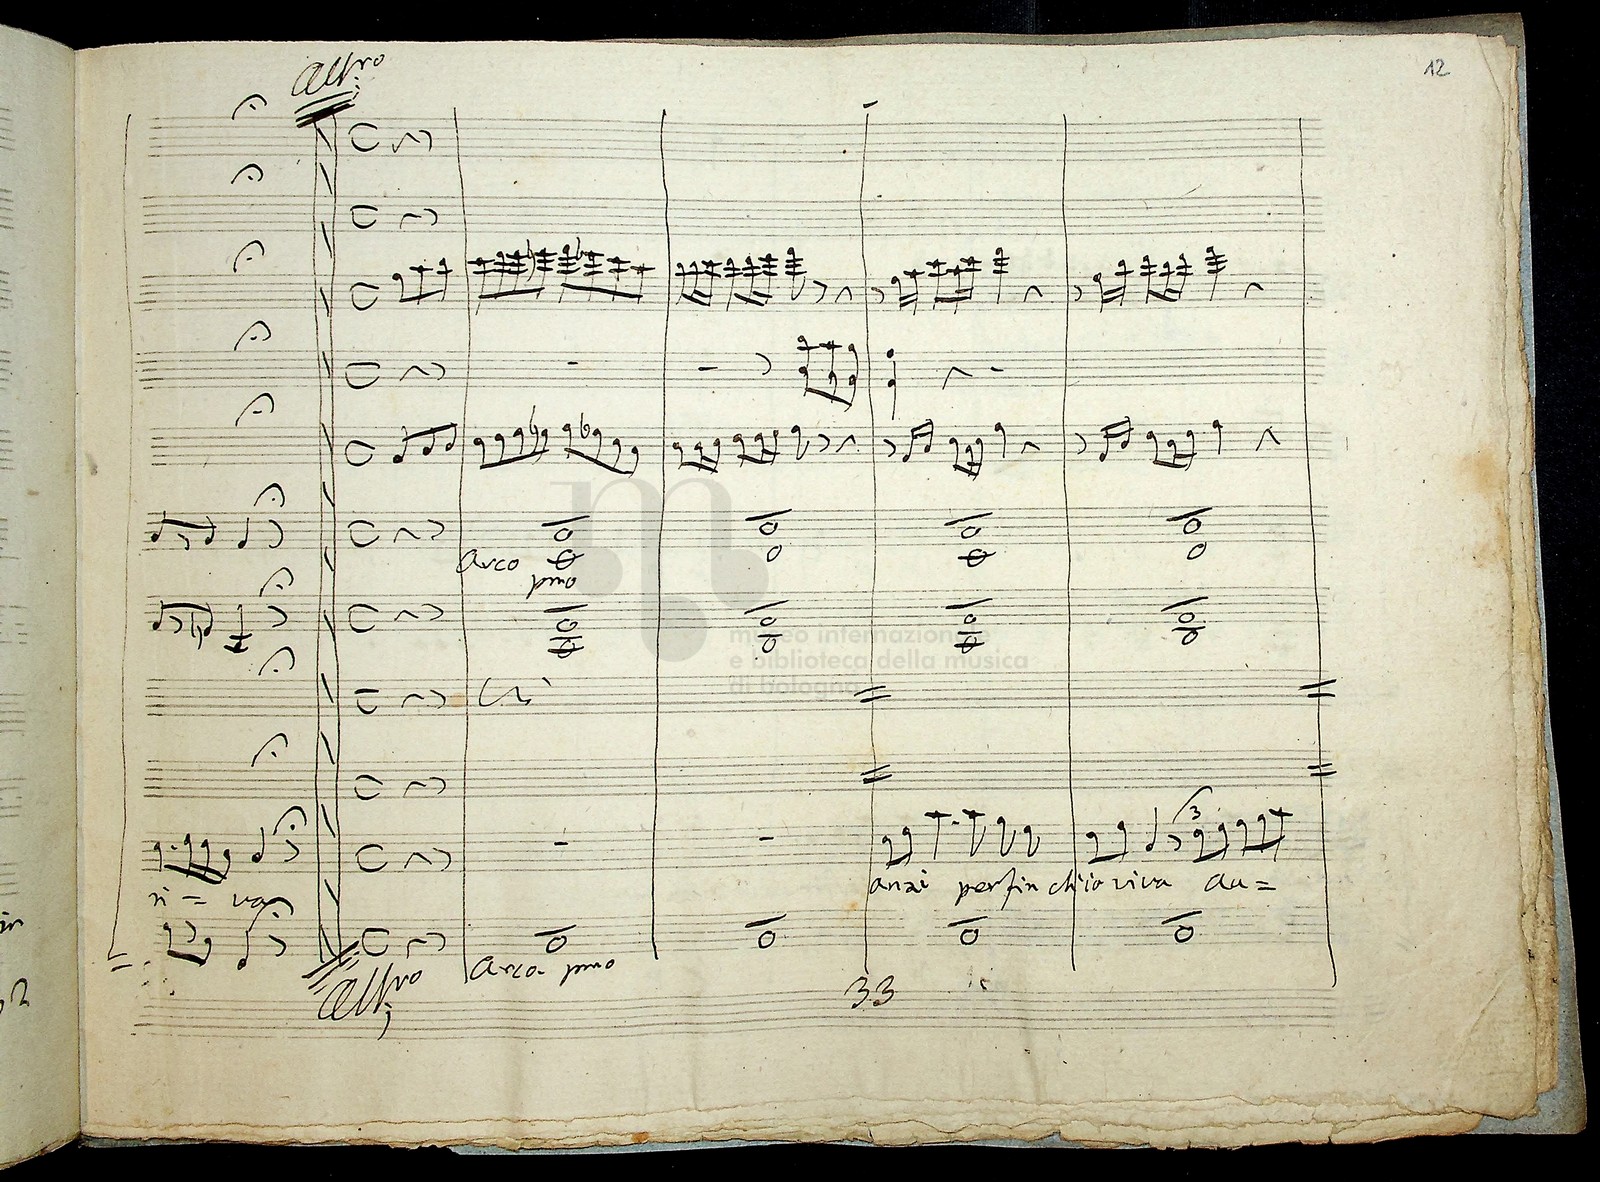 12
All:ro
Arco
pmo
museo internazionale
e biblioteca della musica
di bologna
3
anzi perfin ch'io viva au=
ri = va
Arco pmo
All:ro
33